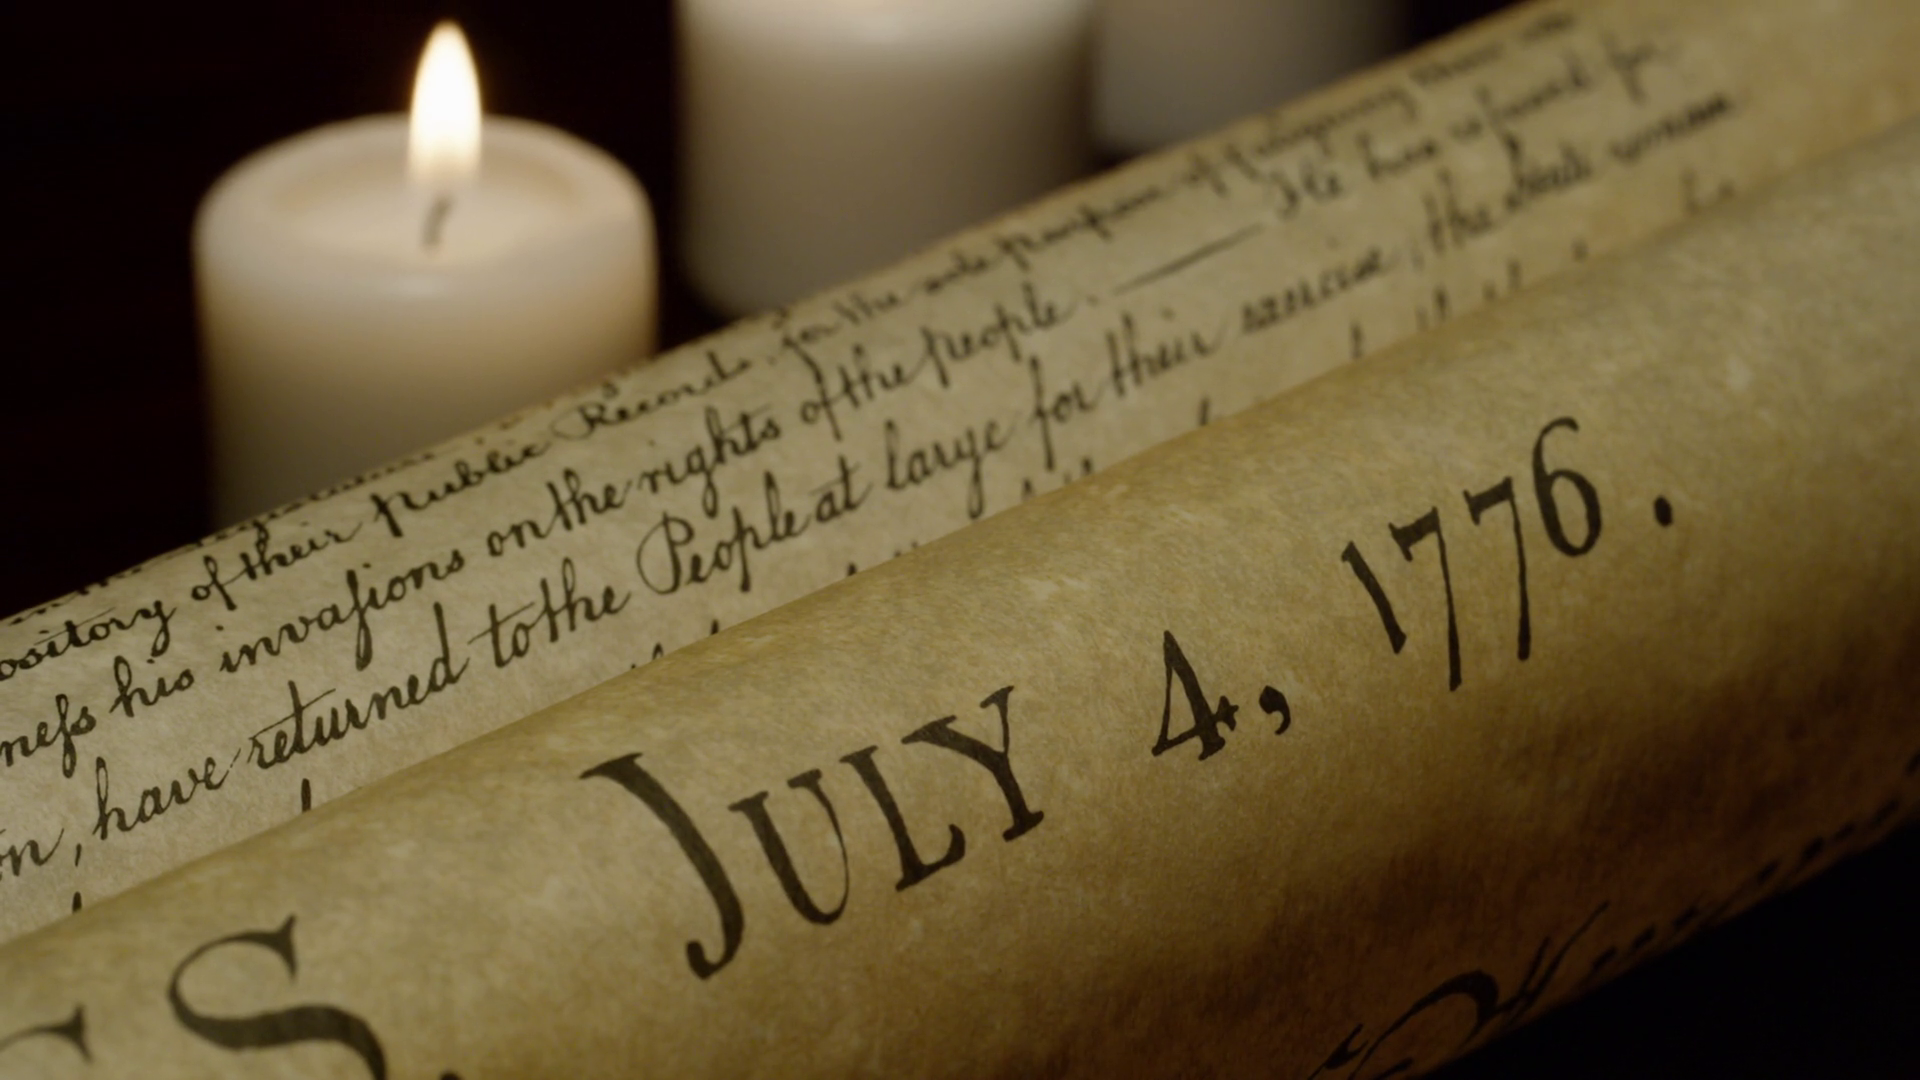 for the sole purpose of fatiguing them
ository of their Public Records, He has refused for
neſs his invaſions on the rights of the people.
on, have returned to the People at large for their exercise; the State
S. JULY 4, 1776.